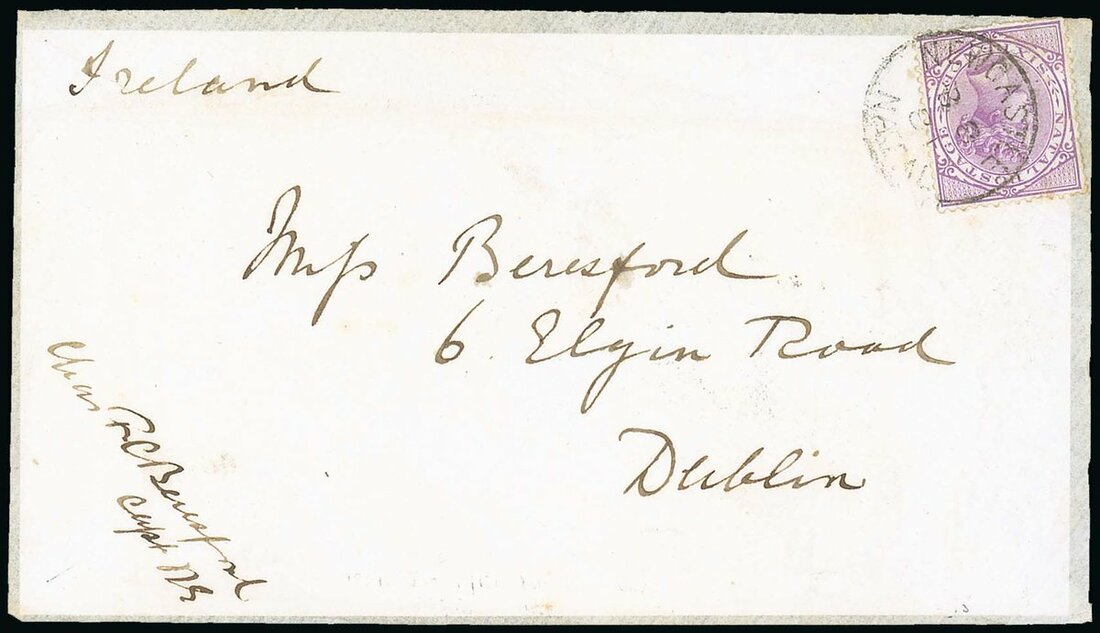 Ireland
NEWCASTLE
NATAL
NATAL POSTAGE
SIXPENCE
Miss Beresford
6 Elgin Road
Dublin
Chas F.C Beresford
Capt RE